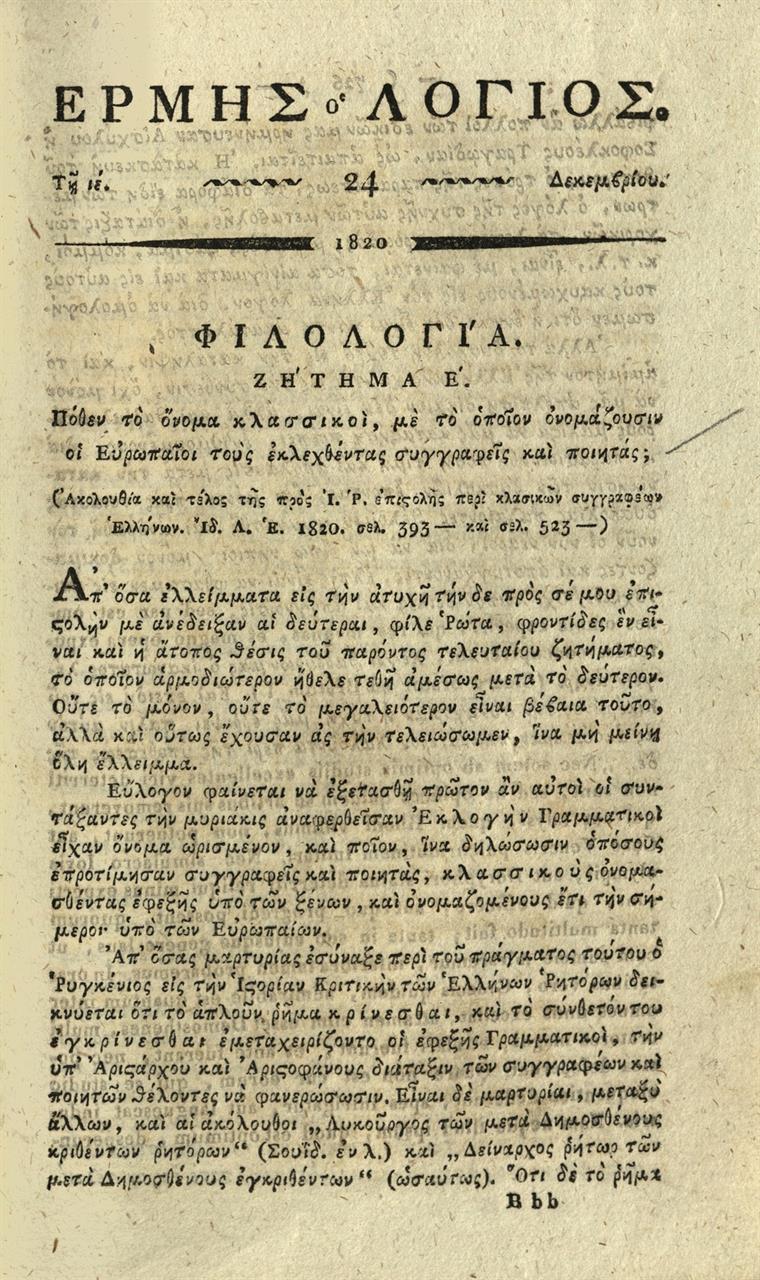 ΕΡΜΗΣ ὁ ΛΟΓΙΟΣ.
Τῇ ιέ. 24 Δεκεμβρίου.
1820
ΦΙΛΟΛΟΓΙ'Α.
ΖΗ'ΤΗΜΑ Ε'.
Πόθεν τὸ ὄνομα κλασσικοὶ, μὲ τὸ ὁποῖον ὀνομάζουσιν
οἱ Εὐρωπαῖοι τοὺς ἐκλεχθέντας συγγραφεῖς καὶ ποιητάς;
(Ἀκολουθία καὶ τέλος τῆς πρὸς Ἰ. Ῥ. ἐπιςολῆς περὶ κλασικῶν συγγραφέων
Ἑλλήνων. Ἴδ. Λ. Ἑ. 1820. σελ. 393 — καὶ σελ. 523 —)
Ἀπ' ὅσα ἐλλείμματα εἰς τὴν ἀτυχῆ τήν δε πρὸς σέ μου ἐπι-
ςολὴν μὲ ἀνέδειξαν αἱ δεύτεραι, φίλε Ῥώτα, φροντίδες ἓν εἶ-
ναι καὶ ἡ ἄτοπος θέσις τοῦ παρόντος τελευταίου ζητήματος,
τὸ ὁποῖον ἁρμοδιώτερον ἤθελε τεθῆ ἀμέσως μετὰ τὸ δεύτερον.
Οὔτε τὸ μόνον, οὔτε τὸ μεγαλειότερον εἶναι βέβαια τοῦτο,
ἀλλὰ καὶ οὕτως ἔχουσαν ἂς τὴν τελειώσωμεν, ἵνα μὴ μείνῃ
ὅλη ἔλλειμμα.
Εὔλογον φαίνεται νὰ ἐξετασθῇ πρῶτον ἂν αὐτοὶ οἱ συν-
τάξαντες τὴν μυριάκις ἀναφερθεῖσαν Ἐκλογὴν Γραμματικοὶ
εἶχαν ὄνομα ὡρισμένον, καὶ ποῖον, ἵνα δηλώσωσιν ὁπόσους
ἐπροτίμησαν συγγραφεῖς καὶ ποιητάς, κλασσικοὺς ὀνομα-
σθέντας ἐφεξῆς ὑπὸ τῶν ξένων, καὶ ὀνομαζομένους ἔτι τὴν σή-
μερον ὑπὸ τῶν Εὐρωπαίων.
Ἀπ' ὅσας μαρτυρίας ἐσύναξε περὶ τοῦ πράγματος τούτου ὁ
Ῥυγκένιος εἰς τὴν Ἱςορίαν Κριτικὴν τῶν Ἑλλήνων Ῥητόρων δει-
κνύεται ὅτι τὸ ἁπλοῦν ῥῆμα κρίνεσθαι, καὶ τὸ σύνθετόν του
ἐγκρίνεσθαι ἐμεταχειρίζοντο οἱ ἐφεξῆς Γραμματικοὶ, τὴν
ὑπ' Ἀριςάρχου καὶ Ἀριςοφάνους διάταξιν τῶν συγγραφέων καὶ
ποιητῶν θέλοντες νὰ φανερώσωσιν. Εἶναι δὲ μαρτυρίαι, μεταξὺ
ἄλλων, καὶ αἱ ἀκόλουθοι „Λυκοῦργος τῶν μετὰ Δημοσθένους
κριθέντων ῥητόρων“ (Σουΐδ. ἐν λ.) καὶ „Δείναρχος ῥήτωρ τῶν
μετὰ Δημοσθένους ἐγκριθέντων“ (ὡσαύτως). Ὅτι δὲ τὸ ῥῆμα
B bb